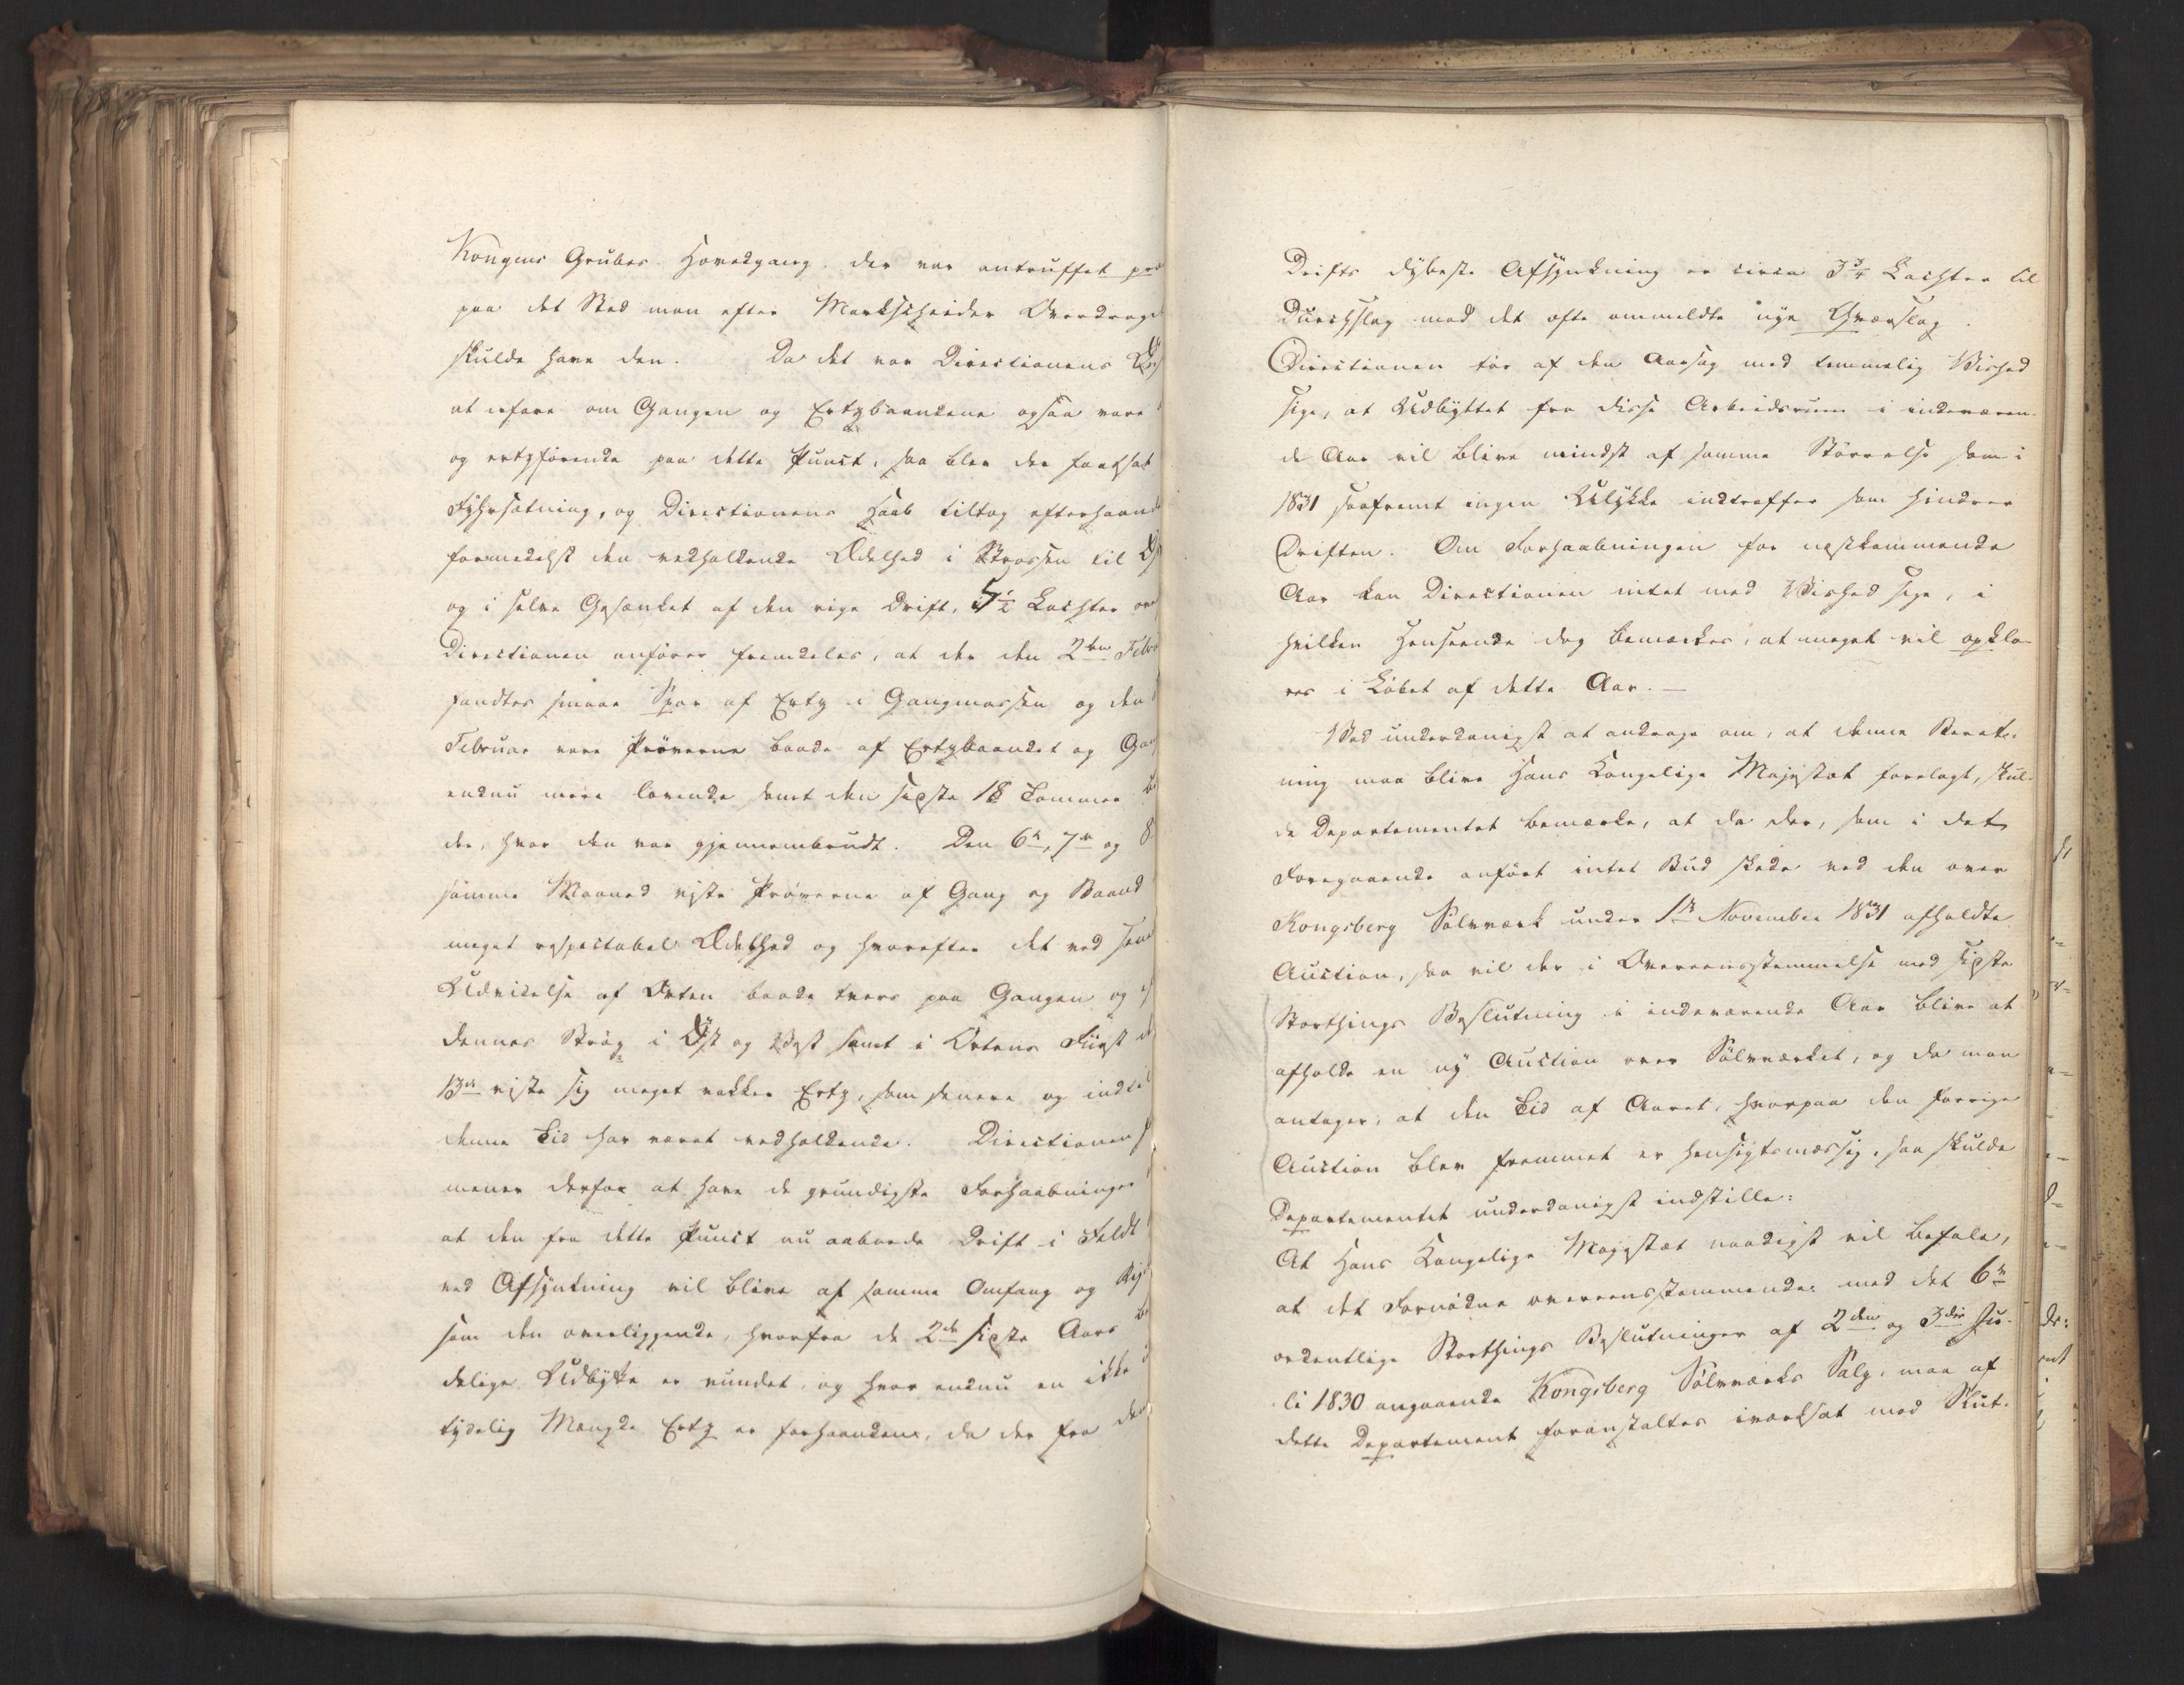 Kongens Grubes Hovedgang. der var antruffet præ
paa det Sted man efter Markscheider Overdraget
skulde have den. Da det var Directionens
at erfare om Gangen og Ertzbaandene ogsaa vare
og ertzførende paa dette Punct, saa blev der fortsat
Fyhrsætning, og Directionens Haab tiltog efterhaand
formedelst den vedholdende Ædelhed i Strossen til
og i selve Gesænket af den rige Drift, 5½ Lachter
Directionen anfører fremdeles, at der den 2den Febr
fandtes smaae Spor af Ertz i Gangmassen og den
Februar vare Prøverne baade af Ertzbaandet og Gang
endnu mere lovende samt den sidste 18 Tommer
der, hvor den var gjennembrudt. Den 6te, 7de og 8
samme Maaned viste Prøverne af Gang og Baand
meget respectabel Ædelhed og hvorefter det ved
Udvidelse af Orten baade tvers paa Gangen og
dennes Strøg i Øst og Vest samt i Ortens Fürst
13de viste sig meget vakker Ertz, som senere og indtil
denne Tid har været vedholdende. Directionen
mener derfor at have de grundigste Forhaabninger
at den fra dette Punct nu aabnede Drift i Feldt
ved Afsynkning vil blive af samme Omfang og
som den overliggende, hvorfra de 2de sidste Aars
delige Udbytte er vundet, og hvor endnu en ikke
tydelig Mængde Ertz er forhaanden, da der fra den
Drifts dybeste Afsynkning er circa 3¾ Lachter til
Durchslag med det ofte ommeldte nye Qværslag.
Directionen tør af den Aarsag med temmelig Vished
sige, at Udbyttet fra disse Arbeidsrum i indeværen-
de Aar vil blive mindst af samme Størrelse som i
1831 saafremt ingen Ulykke indtræffer som hindrer
Driften. Om Forhaabningen for næstkommende
Aar kan Directionen intet med Vished sige, i
hvilken Henseende dog bemærkes, at meget vil opkla-
res i Løbet af dette Aar.—
Ved underdanigst at andrage om, at denne Beret-
ning maa blive Hans Kongelige Majestæt forelagt, skul-
de Departementet bemærke, at da der, som i det
Foregaaende anført intet Bud skede ved den over
Kongsberg Sølvværk under 1ste November 1831 afholdte
Auction, saa vil der i Overeensstemmelse med sidste
Storthings Beslutning i indeværende Aar blive at
afholde en ny Auction over Sølvværket, og da man
antager, at den Tid af Aaret, hvorpaa den forrige
Auction blev fremmet er hensigtsmæssig, saa skulde
Departementet underdanigst indstille:
At Hans Kongelige Majestæt naadigst vil befale,
at det Fornødne overeensstemmende med det 6te
ordentlige Storthings Beslutninger af 2den og 3die Ju-
li 1830 angaaende Kongsberg Sølvværks Salg, maa af
dette Departement foranstaltes iværksat med Slut-